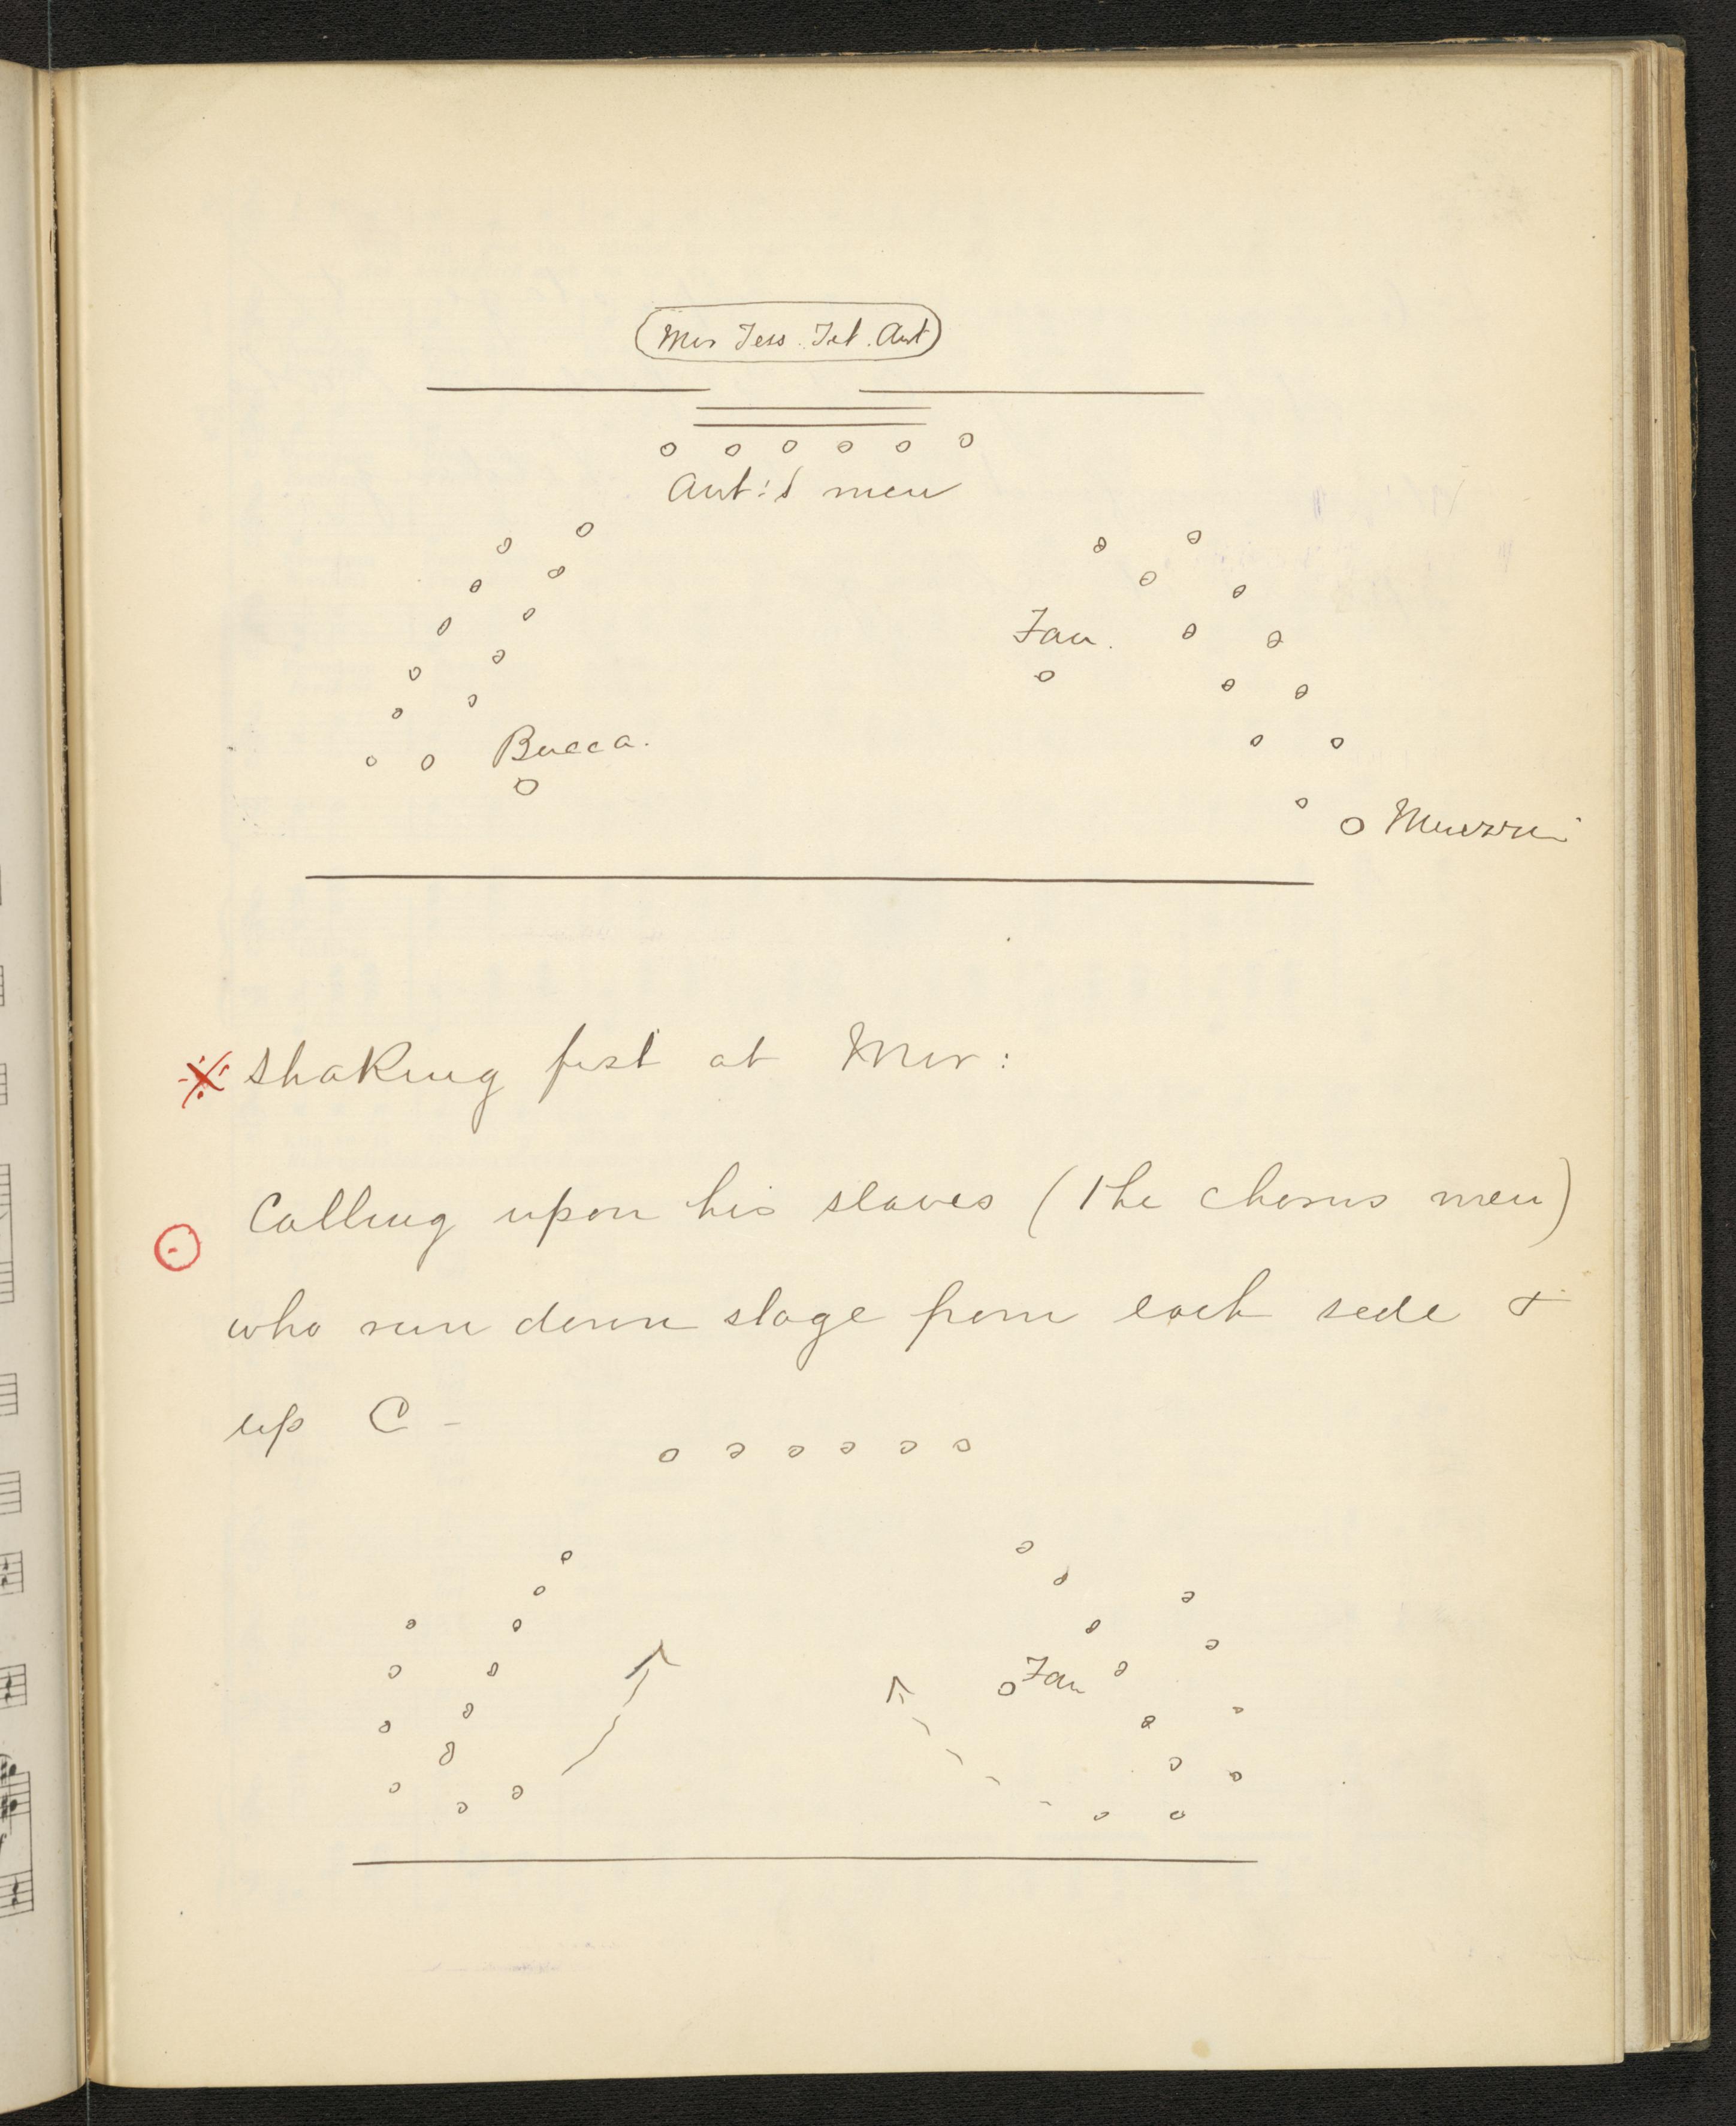 Mer Jess. Jet. Ant
Ant:s men
Fau.
Bucca.
Muezzin
shaking fist at Mer:
Calling upon his slaves (the chorus men)
who run down stage from each side &
up C -
Fau